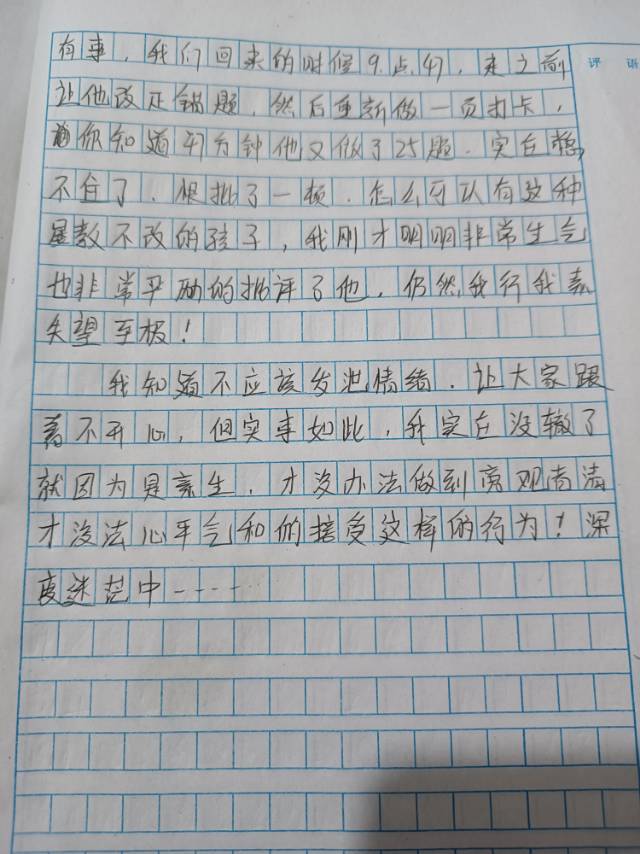 评 语
有事，我们回来的时候9点47，走之前
让他改正错题，然后重新做一页打卡，
你知道47分钟他又做了25题．实在憋
不住了．狠批了一顿．怎么可以有这种
屡教不改的孩子，我刚才明明非常生气
也非常严厉的批评了他，仍然我行我素
失望至极！
我知道不应该发泄情绪．让大家跟
着不开心，但实事如此，我实在没辙了
就因为是亲生，才没办法做到旁观者清
才没法心平气和的接受这样的行为！深
夜迷茫中------